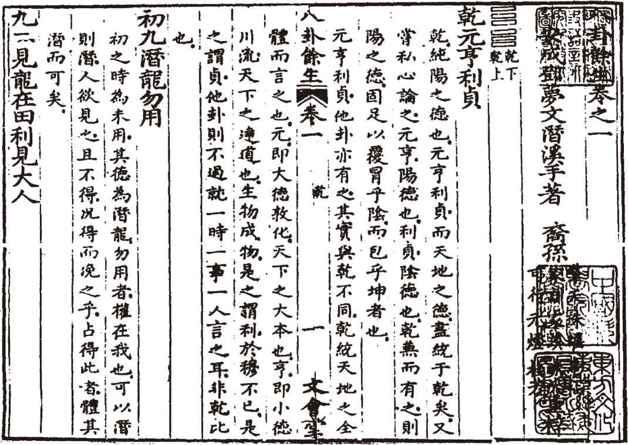 八卦餘生卷之一
安成鄧夢文潛溪手著 裔孫
乾下
乾上
乾元亨利貞
乾純陽之德也元亨利貞而天地之德盡統于乾矣又
嘗私心論之元亨陽德也利貞陰德也乾兼而有之則
陽之德固足以覆冒乎陰而包乎坤者也
元亨利貞他卦亦有之其實與乾不同乾統天地之全
八卦餘生 卷一 乾 一 文會堂
體而言之也元即大德敦化天下之大本也亨即小德
川流天下之達道也生物成物是之謂利於穆不已是
之謂貞他卦則不過就一時一事一人言之耳非乾比
也
初九潛龍勿用
初之時為未用其德為潛龍勿用者權在我也可以潛
則潛人欲見也且不得況得而浼之乎占得此者體其
潛而可矣
九二見龍在田利見大人